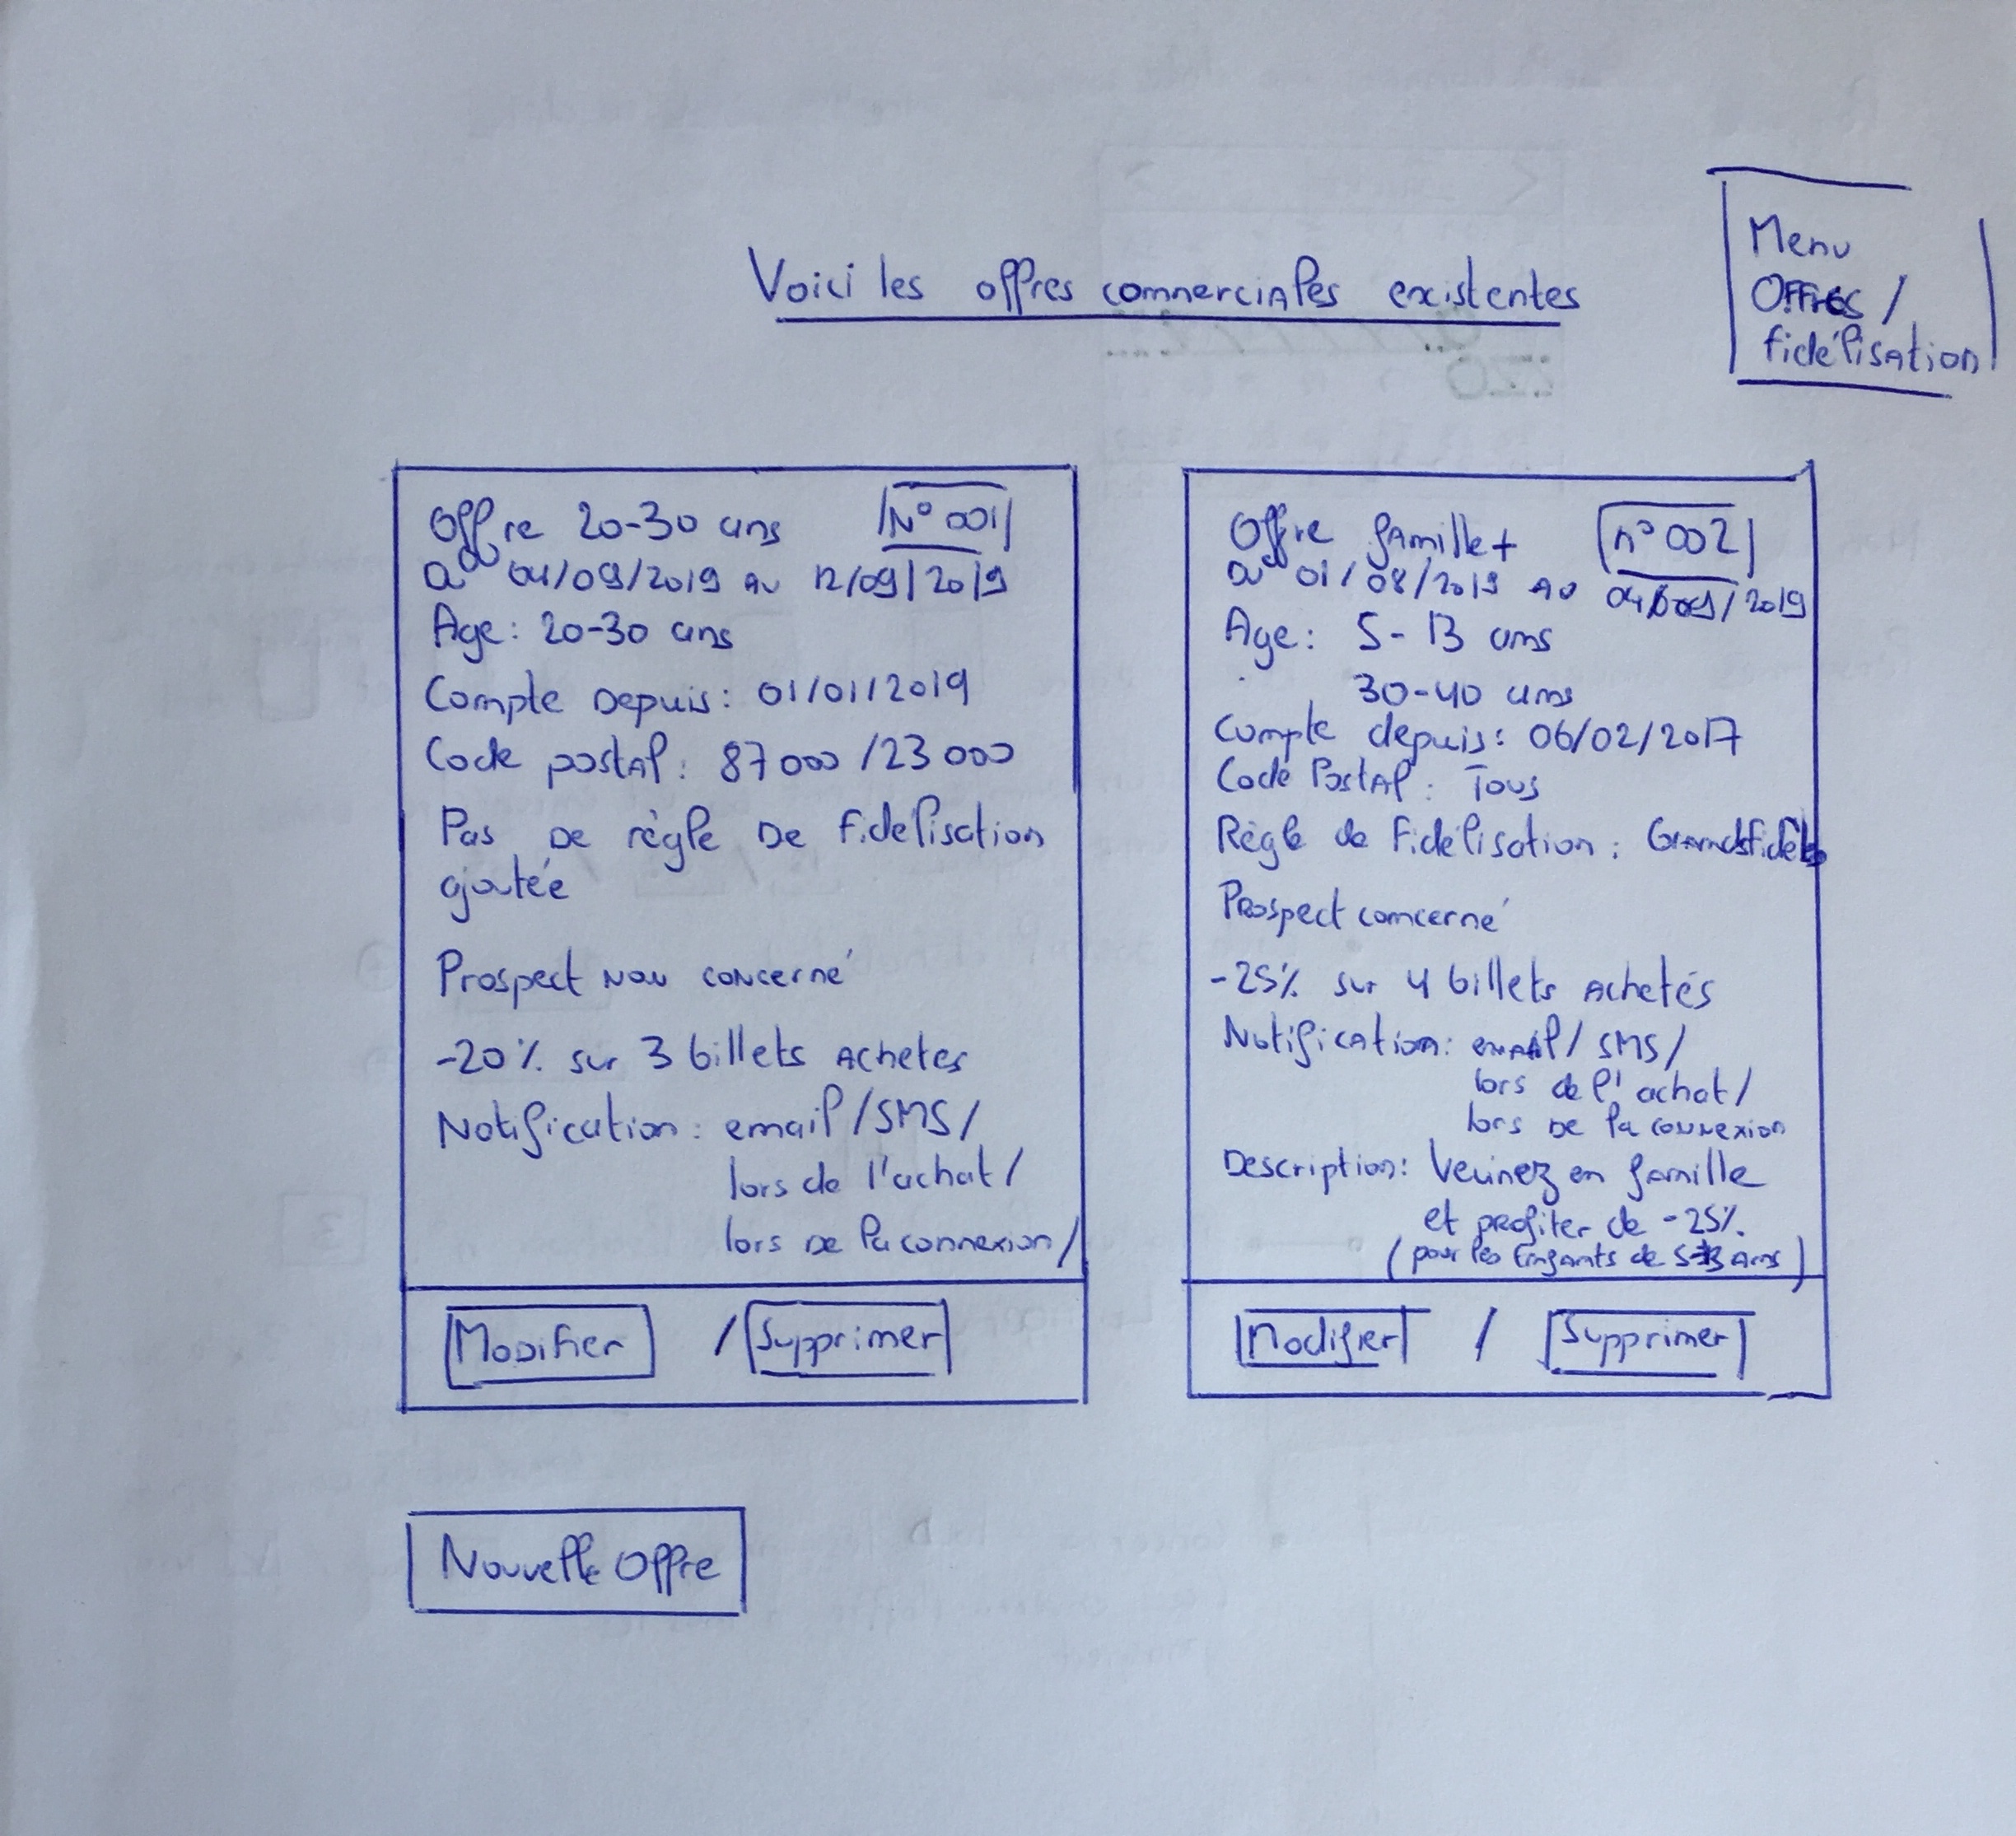 Voici les offres commerciales existentes
Menu
Offres /
fidélisation
Offre 20-30 ans N° 001
du 04/09/2019 au 12/09/2019
Age: 20-30 ans
Compte Depuis: 01/01/2019
Code postal: 87000 / 23000
Pas De règle De fidelisation
ajoutée
Prospect Non concerné
-20% sur 3 billets Achetes
Notification: email / SMS /
lors de l'achat /
lors De la connexion /
Modifier / Supprimer
Offre famille+ n° 002
du 01/08/2019 au /2019
Age: 5-13 ans
30-40 ans
Compte depuis: 06/02/2017
Code Postal: Tous
Règle de Fidélisation: Grandsfidèles
Prospect concerné
-25% sur 4 billets Achetés
Notification: email / SMS /
lors de l'achat /
lors De la connexion
Description: Veuinez en famille
et profiter de -25%
(pour les Enfants de 5-13 Ans)
Modifier / Supprimer
Nouvelle Offre